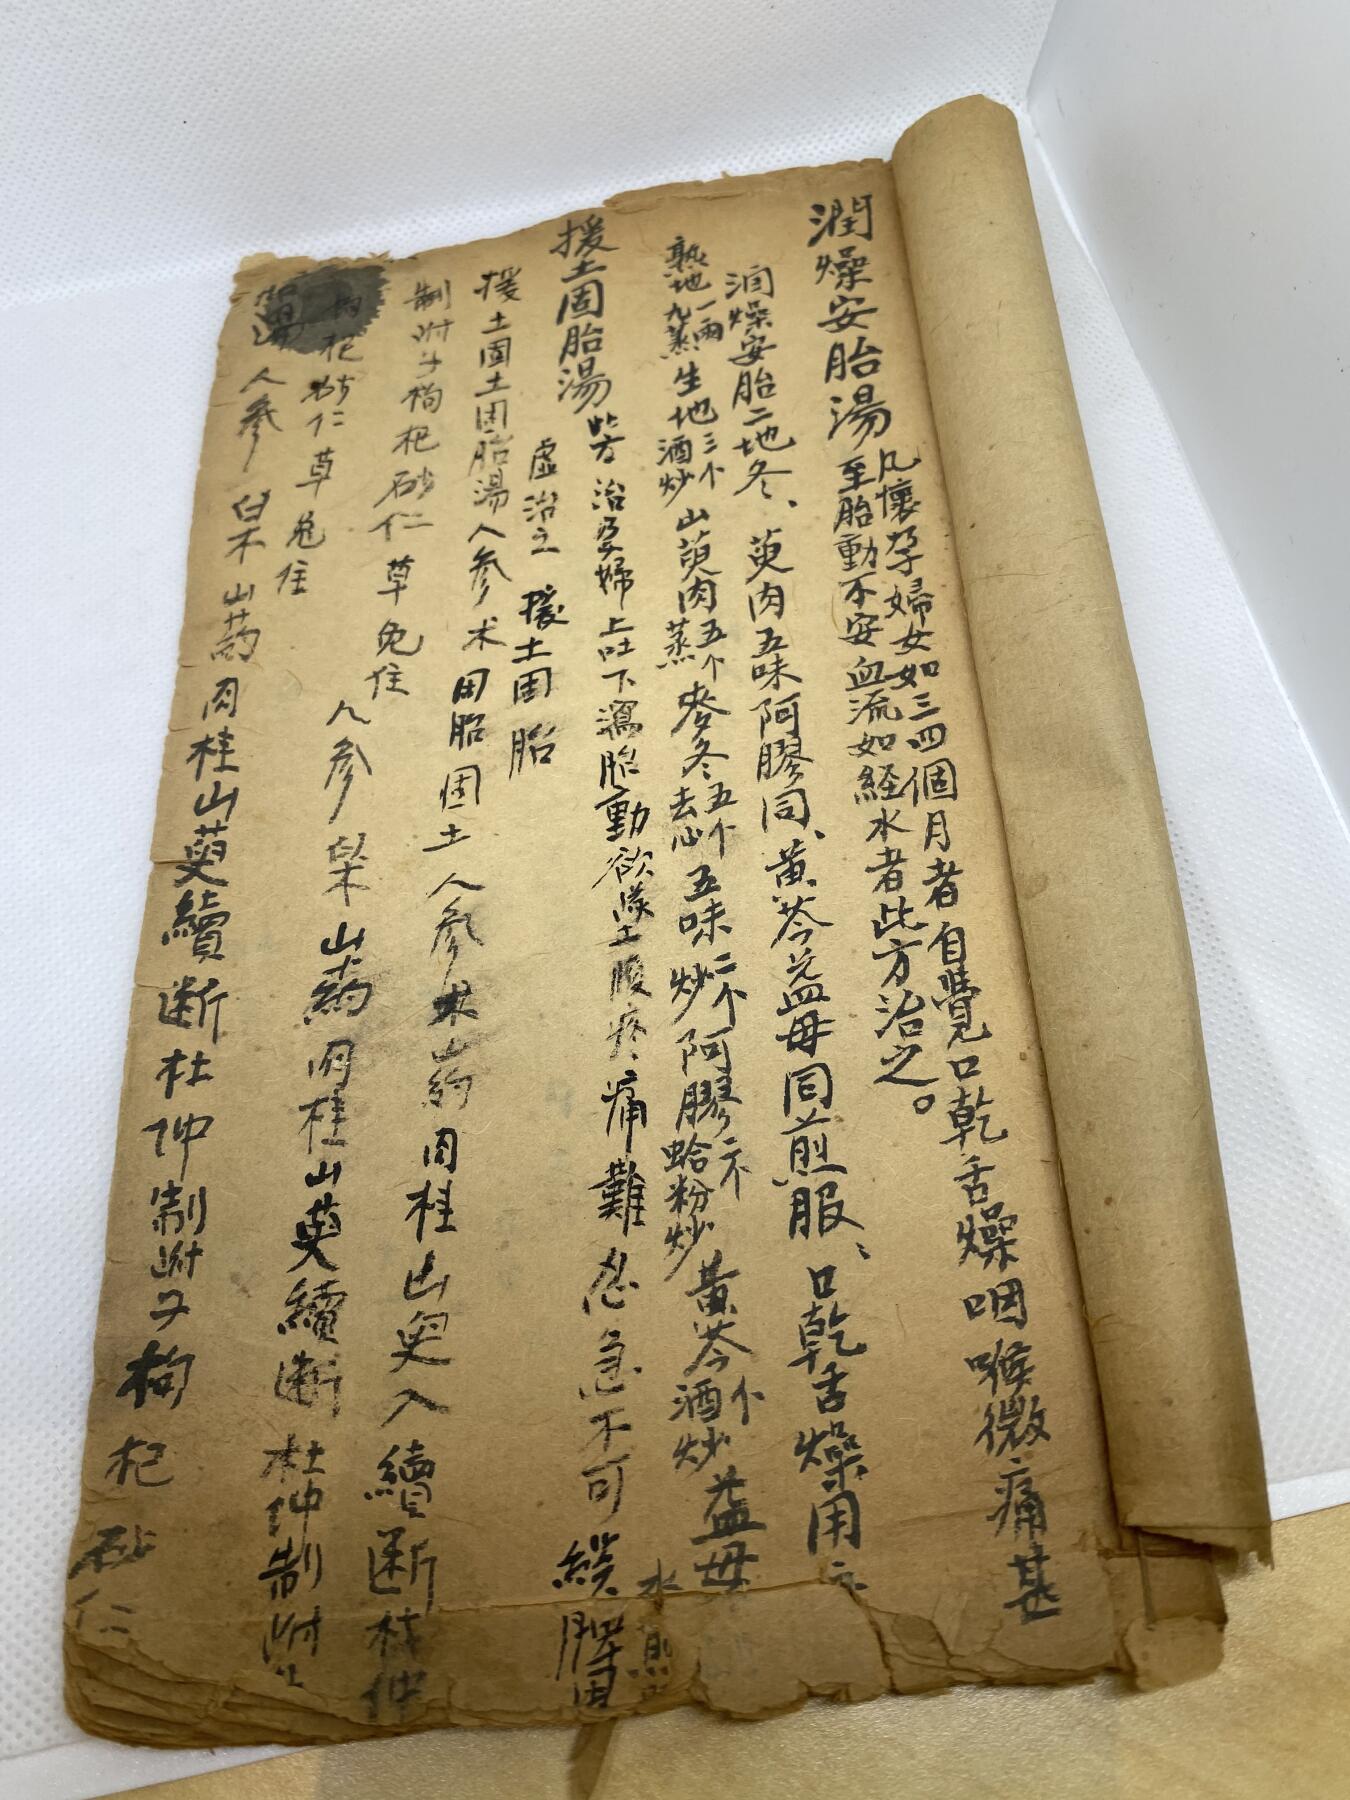 潤燥安胎湯
凡懷孕婦女如三四個月者自覺口乾舌燥咽喉微痛甚
至胎動不安血流如経水者此方治之。
潤燥安胎二地冬、萸肉五味阿膠同、黄芩益母同煎服、口乾舌燥用
熟地一兩九蒸生地三个酒炒山萸肉五个蒸麥冬五个去心五味二个炒阿膠二个蛤粉炒黄芩个酒炒益母
水煎
援土固胎湯
此方治孕婦上吐下瀉胎動欲墜土腹疼痛難忍急不可緩脾固
虛治之援土固胎
援土固土固胎湯人參术固胎固土人參术山药肉桂山萸入續断杜仲
制附子枸杞砂仁草免住
人參皂术山药肉桂山萸續断杜仲制附
枸杞砂仁草免住
湯人參皂术山药肉桂山萸續断杜仲制附子枸杞砂仁